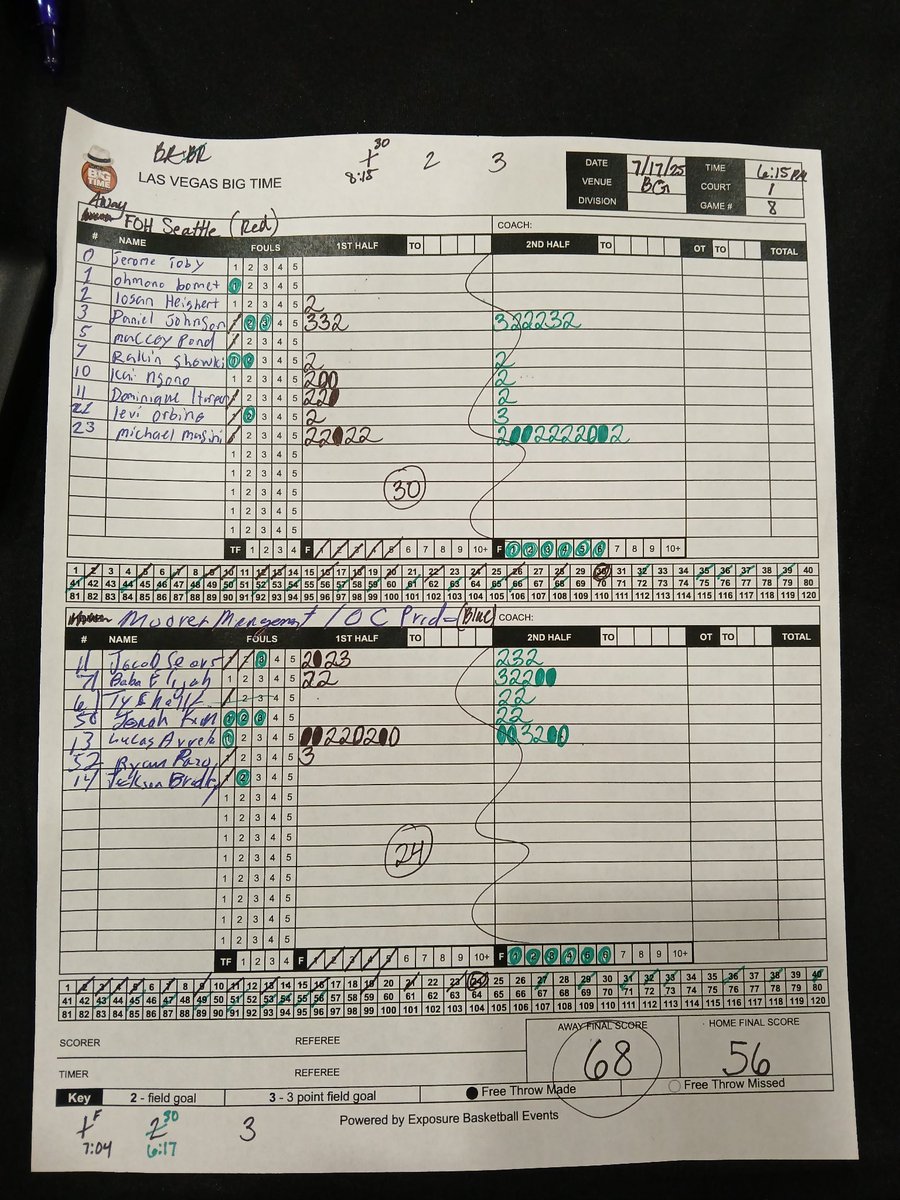 BR BR
+ 30 2 3
8:18
BIG TIME
LAS VEGAS BIG TIME
DATE 7/17/25 TIME 6:15 PM
VENUE BG COURT 1
DIVISION GAME # 8
Away
FOH Seattle (Red) COACH:
# NAME FOULS 1ST HALF TO 2ND HALF TO OT TO TOTAL
0 Jerome Toby 1 2 3 4 5
1 1 2 3 4 5
2 1 2 3 4 5 2
3 Daniel Johnson 1 2 3 4 5 332 322232
5 maccoy Pond 1 2 3 4 5
7 1 2 3 4 5 2 2
10 Kai Ngono 1 2 3 4 5 200 2
11 Dominique 1 2 3 4 5 22● 2
22 levi orbino 1 2 3 4 5 2 3
23 michael 1 2 3 4 5 22●22 2●●22220●2
1 2 3 4 5
1 2 3 4 5
1 2 3 4 5
30
1 2 3 4 5
1 2 3 4 5
TF 1 2 3 4 F 1 2 3 4 5 6 7 8 9 10+ F 1 2 3 4 5 6 7 8 9 10+
1 2 3 4 5 6 7 8 9 10 11 12 13 14 15 16 17 18 19 20 21 22 23 24 25 26 27 28 29 30 31 32 33 34 35 36 37 38 39 40
41 42 43 44 45 46 47 48 49 50 51 52 53 54 55 56 57 58 59 60 61 62 63 64 65 66 67 68 69 70 71 72 73 74 75 76 77 78 79 80
81 82 83 84 85 86 87 88 89 90 91 92 93 94 95 96 97 98 99 100 101 102 103 104 105 106 107 108 109 110 111 112 113 114 115 116 117 118 119 120
Moorer Management / OC Pride (Blue) COACH:
# NAME FOULS 1ST HALF TO 2ND HALF TO OT TO TOTAL
11 Jacob Sears 1 2 3 4 5 2●23 232
71 Baba Elijah 1 2 3 4 5 22 322●●
1 2 3 4 5 22
50 Jonah 1 2 3 4 5 22
13 Lucas 1 2 3 4 5 ●●2202●0 ●●32●0
52 Ryan 1 2 3 4 5 3
14 Jackson Bradley 1 2 3 4 5
1 2 3 4 5
1 2 3 4 5
1 2 3 4 5
24
1 2 3 4 5
1 2 3 4 5
1 2 3 4 5
1 2 3 4 5
1 2 3 4 5
TF 1 2 3 4 F 1 2 3 4 5 6 7 8 9 10+ F 1 2 3 4 5 6 7 8 9 10+
1 2 3 4 5 6 7 8 9 10 11 12 13 14 15 16 17 18 19 20 21 22 23 24 25 26 27 28 29 30 31 32 33 34 35 36 37 38 39 40
41 42 43 44 45 46 47 48 49 50 51 52 53 54 55 56 57 58 59 60 61 62 63 64 65 66 67 68 69 70 71 72 73 74 75 76 77 78 79 80
81 82 83 84 85 86 87 88 89 90 91 92 93 94 95 96 97 98 99 100 101 102 103 104 105 106 107 108 109 110 111 112 113 114 115 116 117 118 119 120
SCORER REFEREE AWAY FINAL SCORE HOME FINAL SCORE
68 56
TIMER REFEREE
Key 2 - field goal 3 - 3 point field goal Free Throw Made Free Throw Missed
Powered by Exposure Basketball Events
+ F 2 30 3
7:04 6:17